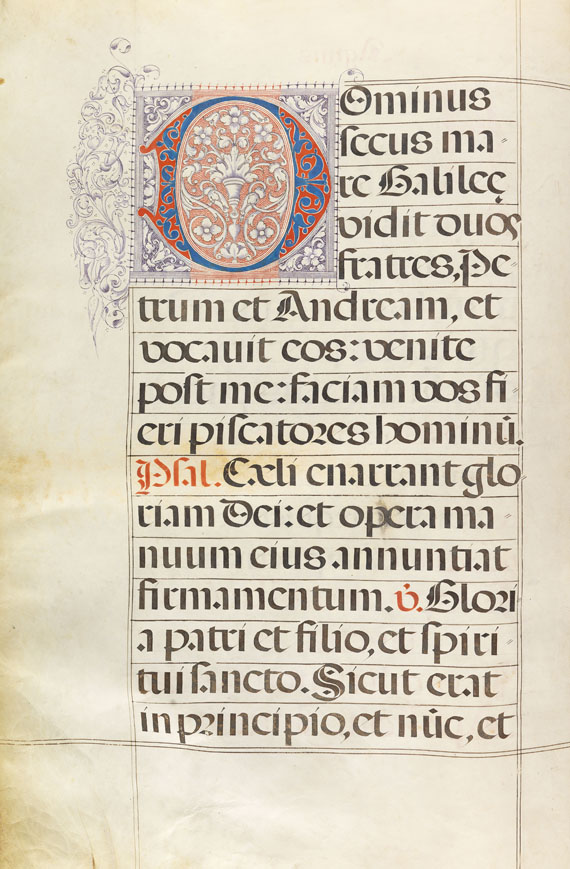 DOminus
secus ma-
re Galileę
vidit duos
fratres, Pe-
trum et Andream, et
vocavit eos: venite
post me: faciam vos fi-
eri piscatores hominū.
Psal. Cæli enarrant glo-
riam Dei: et opera ma-
nuum eius annuntiat
firmamentum. ℣. Glori-
a patri et filio, et spiri-
tui sancto. Sicut erat
in principio, et nūc, et